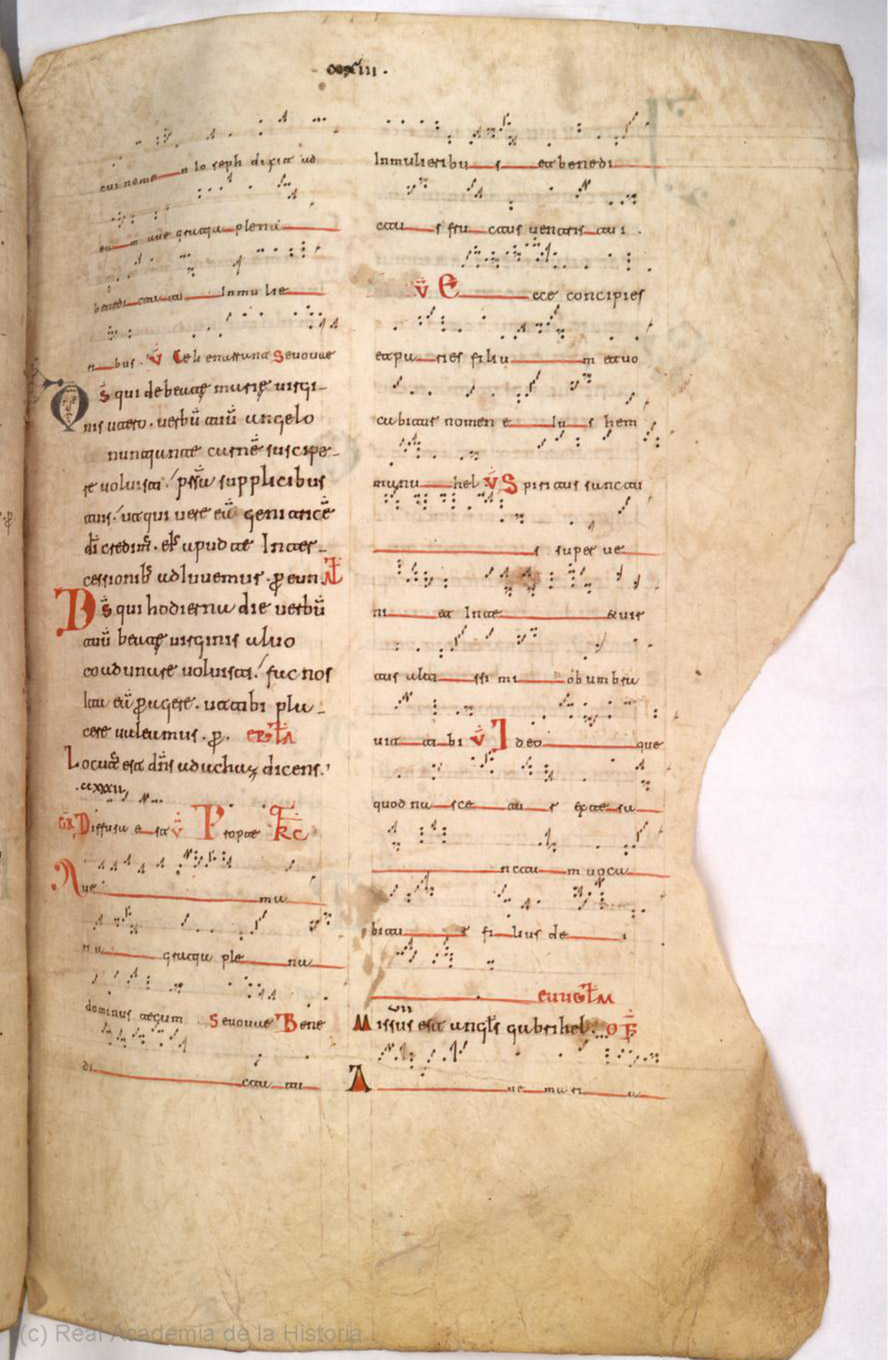 cui nome n Io seph dixit ad
ea m aue gracia plena
benedi cta tu In mu lie
ri bus. V Celi enarrant Seuouae
Ds̄ qui de beatę marię uirgi-
nis utero. uerbū tuū angelo
nunciante carnē suscipe-
re uoluisti. supplicibus
tuis. ut qui uere eā genitricē
dī credim̄. apud te Inter-
cessionib adiuuemus. p eun
Ds̄ qui hodierna die uerbū
tuū beatę uirginis aluo
coadunare uoluisti. fac nos
Ita eā ut tibi pla-
cere ualeamus. p.
Locut̄ est dn̄s ad achaz dicens.
cxxxii
GR Diffusa e st V̄ Propte
Aue ma
ri a gracia ple na
dominus tecum Seuouae Bene
di cta tu
In mulieribu s et benedi
ctu s fru ctus uentris tui.
V̄ Ecce concipies
et pa ries filiu m et uo
cabitis nomen e iu s hem
manu hel V̄ Spiritus sanctu
s super ue
ni et In te uir
tus alti ssi mi obumbra
uit ti bi V̄ Ideo que
quod na sce tu r ex te sa
nctu m uoca
bitu r fi lius de i
Missus est angls gabrihel. OF
A ue mari a
(c) Real Academia de la Historia